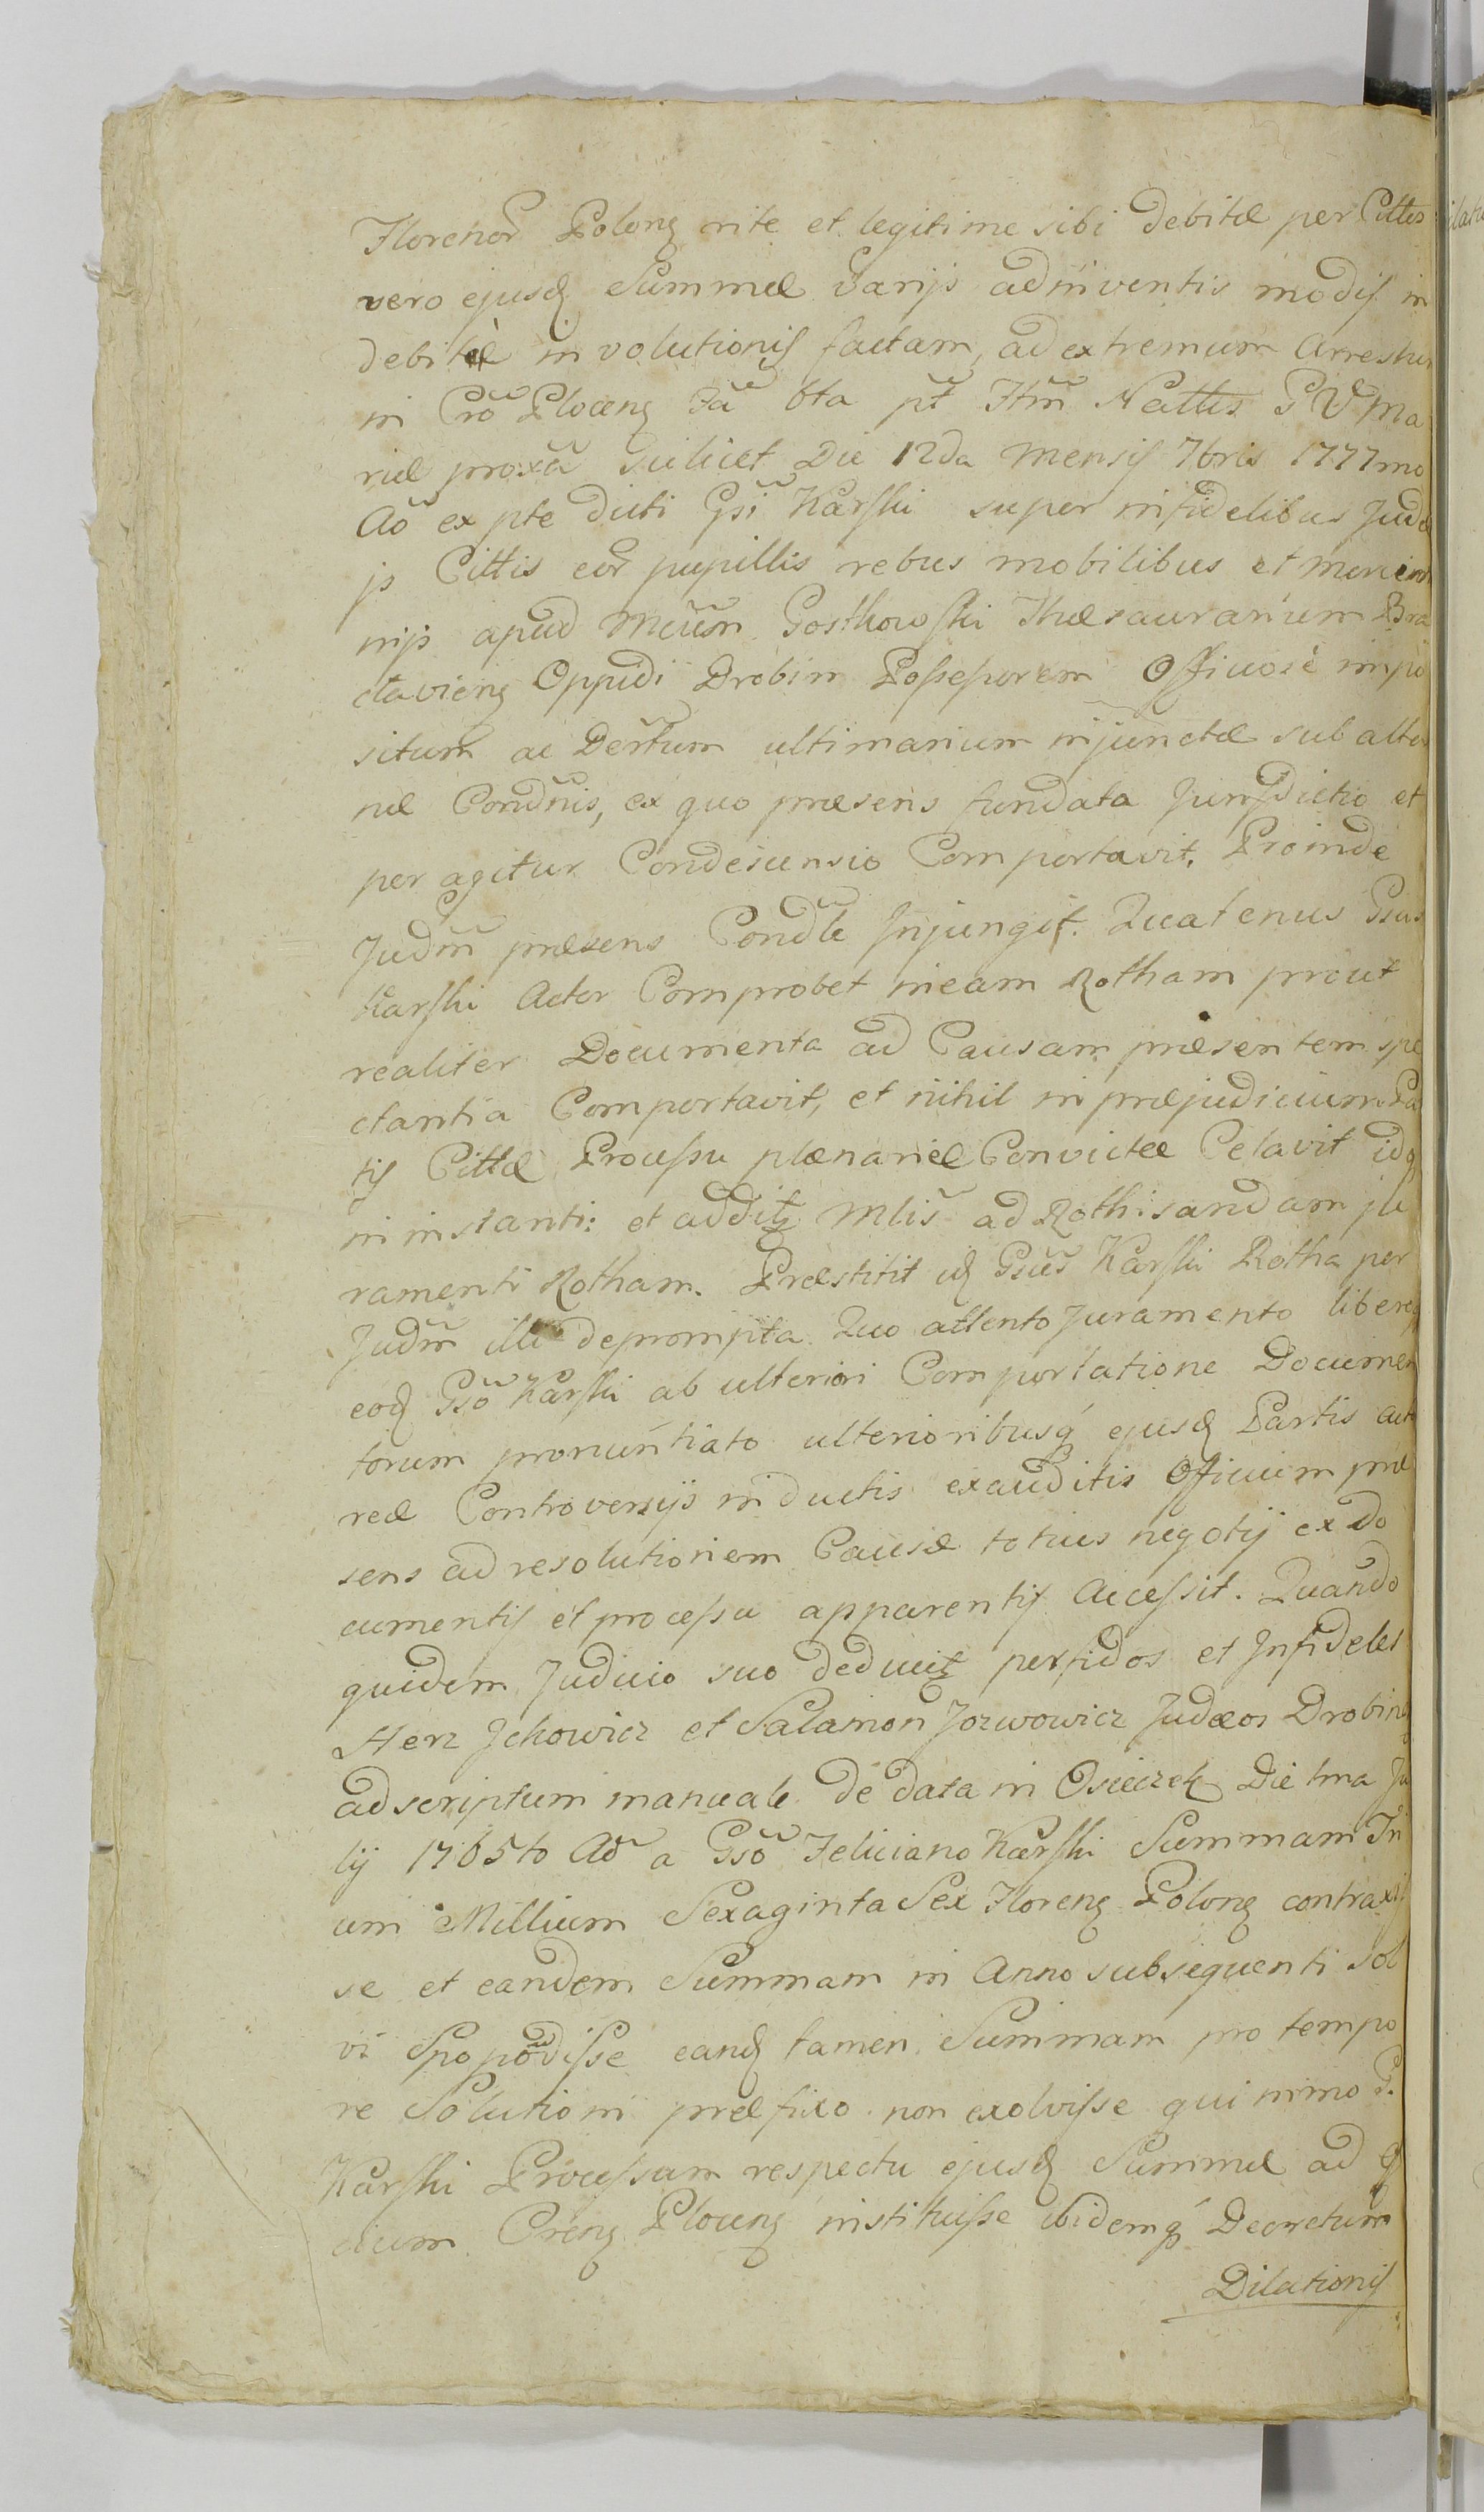 Florenor̃ Polong rite et legitime sibi debitæ per Cittos
vero ejusd Summæ varijs adinventis modis in
debitæ in volutionis factam, ad extremum Arrestu
in Cro Plocens Fa 6ta pt Ftm Nattis B V Ma
riæ proxa scilicet Die 12da Mensis 7bris 1777mo
Ao ex pte dicti Gsi Karski super infidelibus Judæ
js Cittis eor pupillis rebus mobilibus et mercimo
nijs apud Mcum Gosthowski Thesaurarium Bra
claviens Oppidi Drobin Possessorem Officiose impo
situm ac Decrtum ultimarium injunctæ sub alter
næ Condnis, ex quo præsens fundata Jurisdictio et
per agitur Condescensio Comportavit. Proinde
Judm præsens Condle Injungit. Quatenus Gsus
Karski Actor Comprobet in eam Rotham prout
realiter Documenta ad Causam præsentem spe
ctantia Comportavit, et nihil in præjudicium Pa
tis Cittæ Processu plænariæ Convictæ Celavit idq
in instanti: et addit Mlis ad Rothisandam ju
ramenti Rotham. Præstitit id Gsus Karski Rotha per
Judm illi deprompta. Quo attento Juramento libereq
eod Gso Karski ab ulteriori Comportatione Documen
torum pronuntiato ulterioribusq ejusd Partis acto
reæ Controversijs inductis exauditis Officium præ
sens ad resolutionem Causæ totius negotij ex do
cumentis et processu apparentis Accessit. Quando
quidem Judicio suo deducit perfidos et Infideles
Herz Jckowicz et Salamon Jozwowicz Judæos Drobins
ad scriptum manuale de data in Osieczek Die 1ma Ju
lij 1765to Ao a Gso Feliciano Karski Summam Tri
um Millium Sexaginta Sex Floreng Polong contraxis
se et eandem Summam in Anno subsequenti sol
vi Spopondisse eand tamen Summam pro tempo
re Solutioni præfixo non exolvisse qui nimo G.
Karski Processum respectu ejusd Summæ ad offi
cium Crens Plocens instituisse ibidemq Decretum
Dilationis